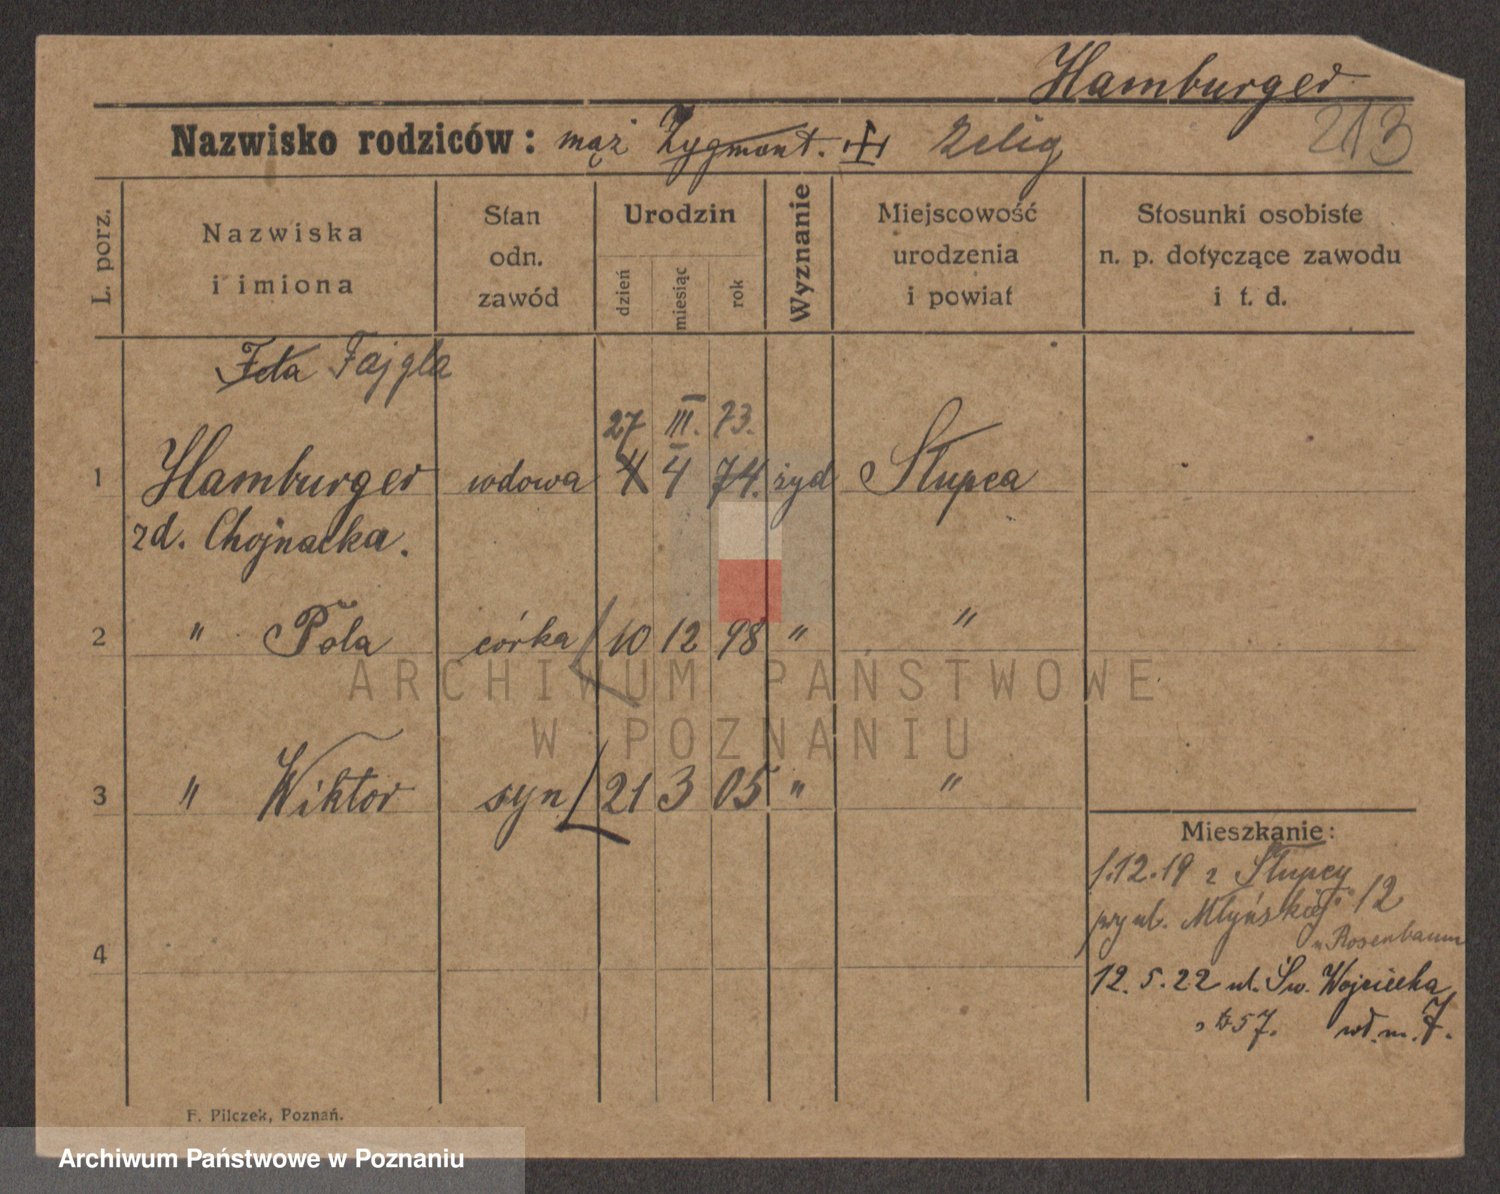 Hamburger
213
Nazwisko rodziców: mąż Zygmont. Zelig
L. porz.
Nazwiska
i imiona
Stan
odn.
zawód
Urodzin
dzień
miesiąc
rok
Wyznanie
Miejscowość
urodzenia
i powiat
Stosunki osobiste
n. p. dotyczące zawodu
i t. d.
Fela Fajgla
27 III. 73.
1 Hamburger wdowa 4 4 74. żyd Słupca
zd. Chojnacka.
2 " Pola córka 10 12 98 " "
3 " Wiktor syn 21 3 05 " "
4
Mieszkanie:
1.12.19 z Słupcy
przy ul. Młyńskiej 12
u Rosenbaum
12. 5. 22 ul. Św. Wojciecha
57. m. 7.
F. Pilczek, Poznań.
ARCHIWUM PAŃSTWOWE
W POZNANIU
Archiwum Państwowe w Poznaniu